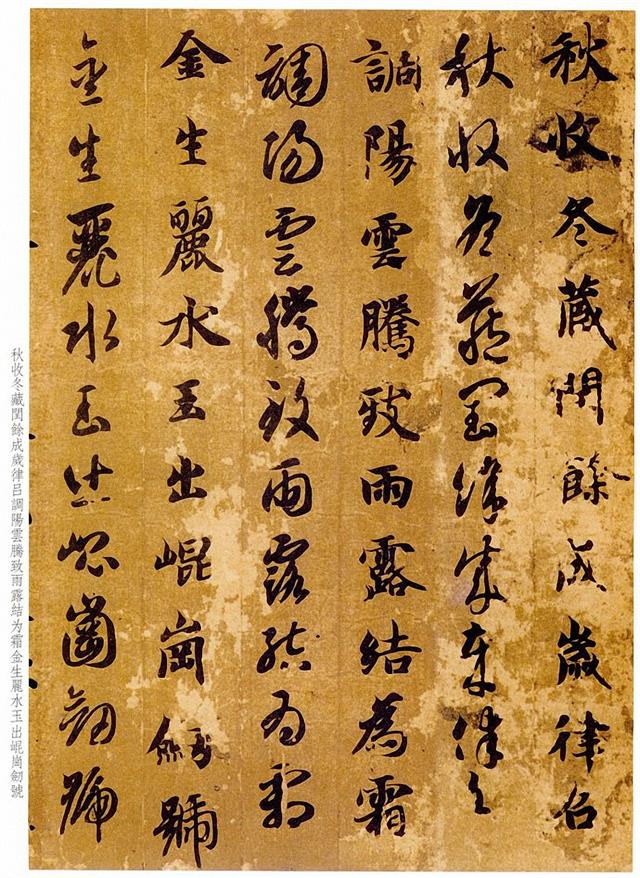 秋收冬蔵閏餘成歲律召
秋收冬蔵閏餘成歲律召
調陽雲騰致雨露結為霜
調陽雲騰致雨露結為霜
金生麗水玉出崐崗劒號
金生麗水玉出崐崗劒號
秋收冬藏閏餘成歲律吕調陽雲騰致雨露結为霜金生麗水玉出崐崗劒號